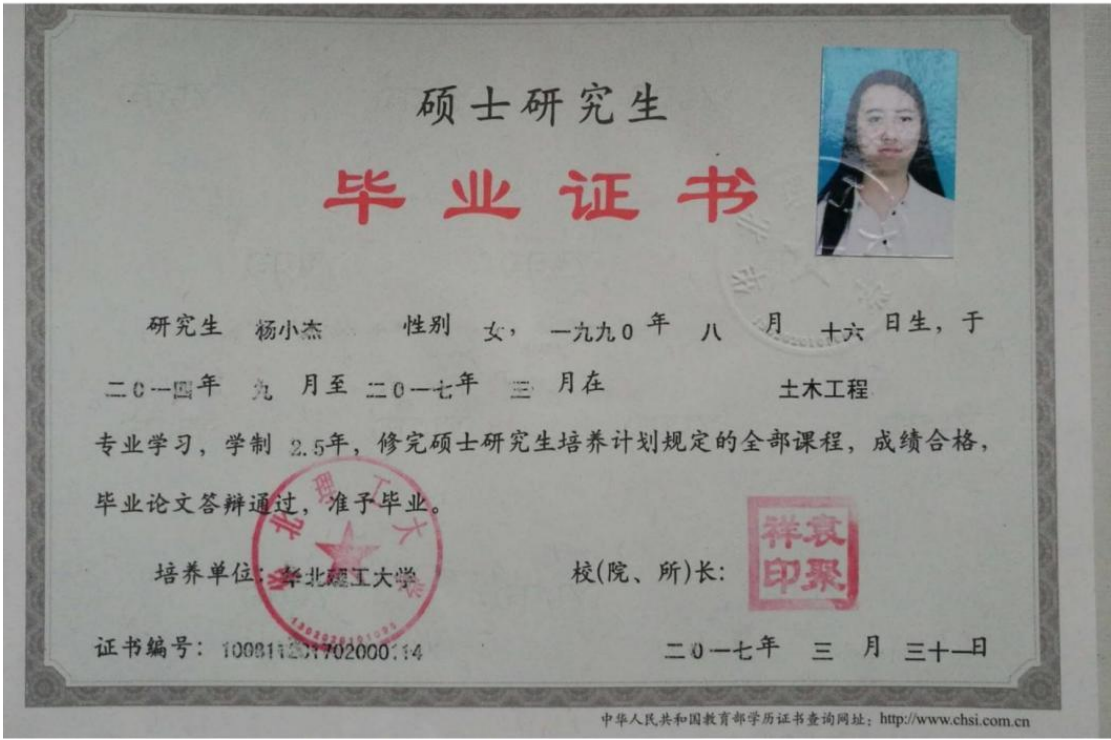 硕士研究生
毕业证书
研究生 杨小杰 性别 女， 一九九0 年 八 月 十六 日生，于
二0一四年 九 月至 二0一七年 三 月在 土木工程
专业学习，学制 2.5年，修完硕士研究生培养计划规定的全部课程，成绩合格，
毕业论文答辩通过，准予毕业。
培养单位：华北理工大学 校(院、所)长：
华北理工大学
袁聚祥印
证书编号：
二0一七年 三 月 三十一日
中华人民共和国教育部学历证书查询网址：http://www.chsi.com.cn